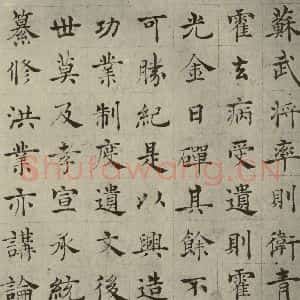 蘇武將率則衛青
霍去病受遺則霍
光金日磾其餘不
可勝紀是以興造
功業制度遺文後
世莫及孝宣承統
纂修洪業亦講論
Shufawang.CN